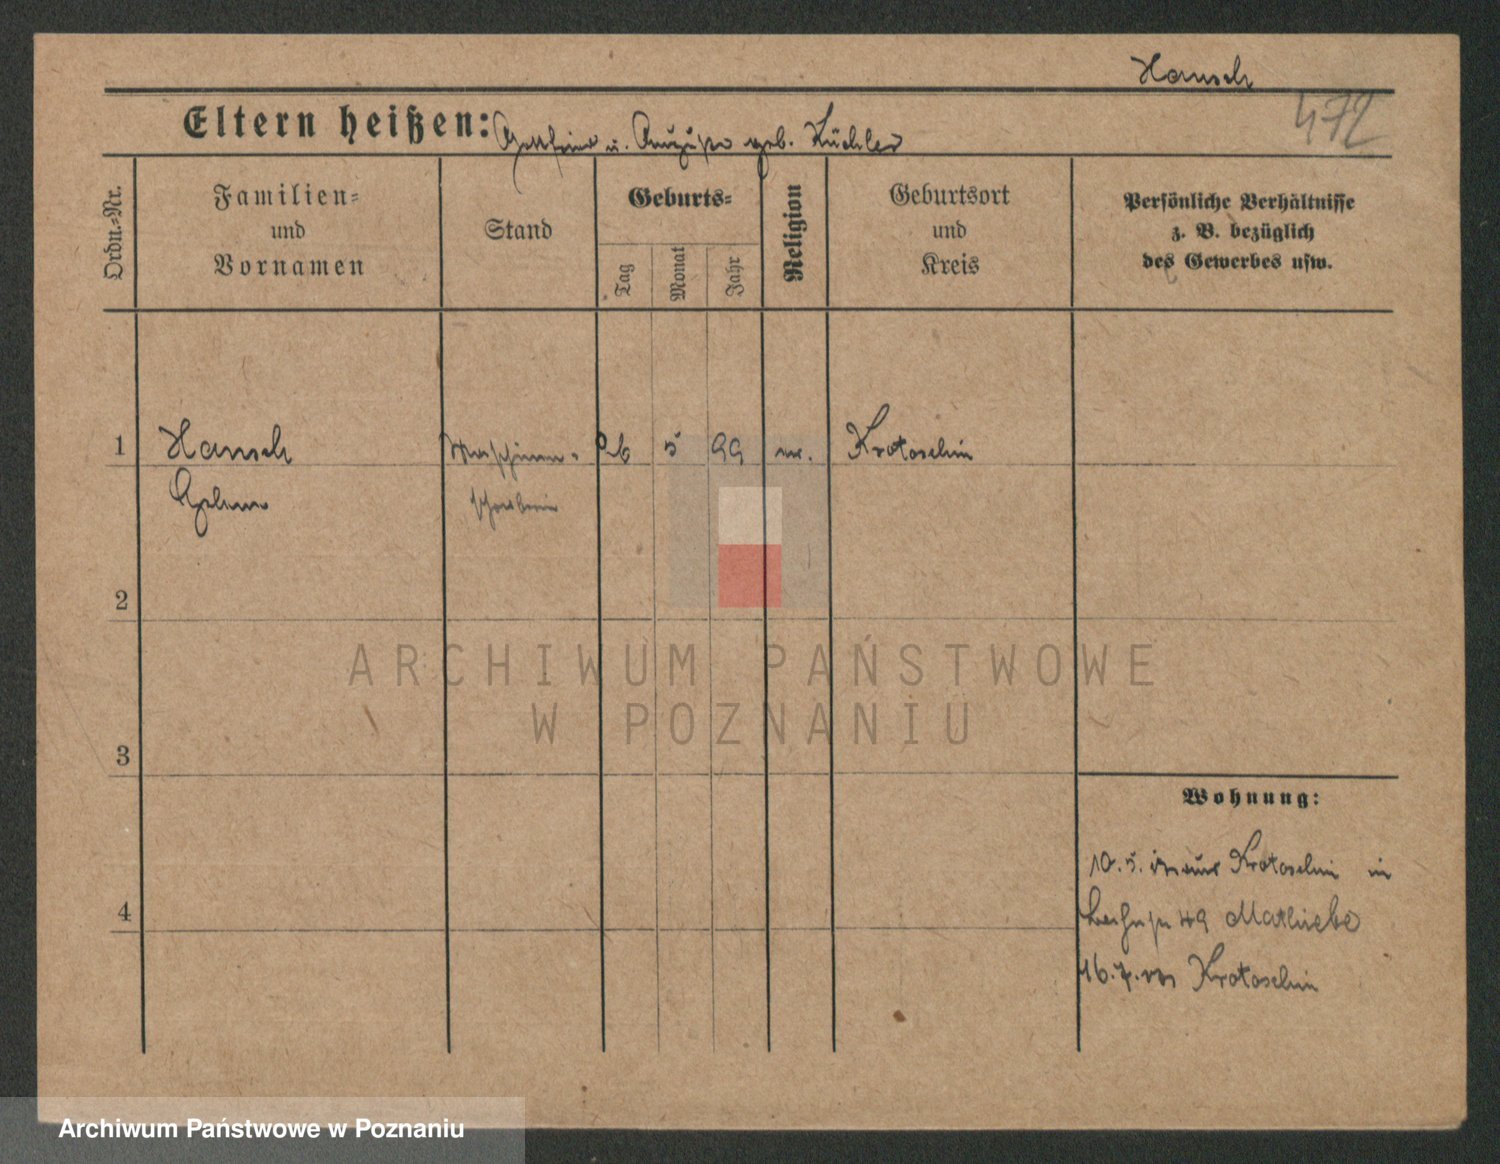 Hansch
472
Eltern heißen: Gottfried u. Auguste geb. Küchler
Ordn.-Nr.
Familien-
und
Vornamen
Stand
Geburts-
Tag
Monat
Jahr
Religion
Geburtsort
und
Kreis
Persönliche Verhältnisse
z. B. bezüglich
des Gewerbes usw.
1
Hansch
Maschinen-
26 5 99
Krotoschin
schreiberin
2
ARCHIWUM PAŃSTWOWE
W POZNANIU
3
Wohnung:
10. 5. Krotoschin in
49 Matliebe
4
16. 7. von Krotoschin
Archiwum Państwowe w Poznaniu